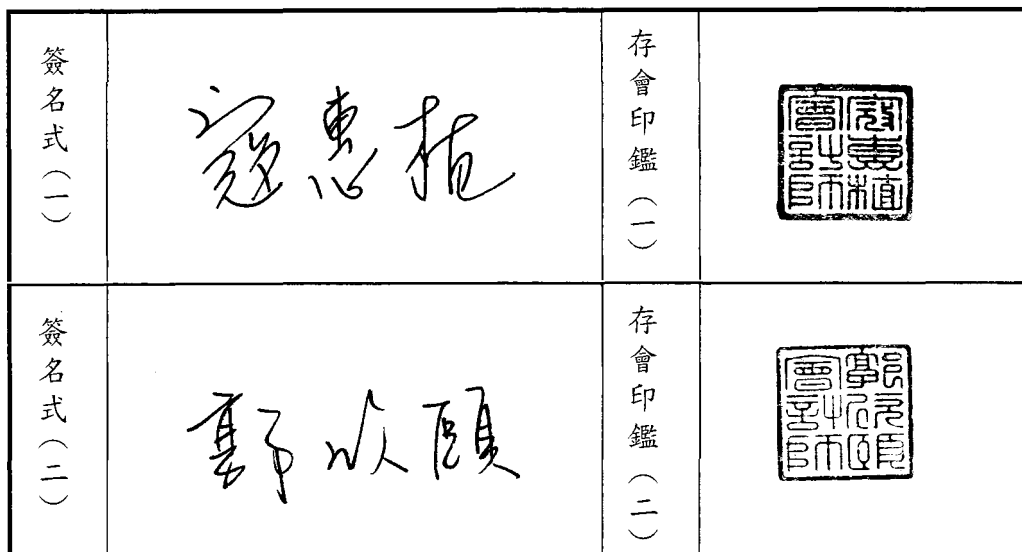 簽名式(一)
寇惠植
存會印鑑(一)
寇惠植會計師
簽名式(二)
郭欣頤
存會印鑑(二)
郭欣頤會計師